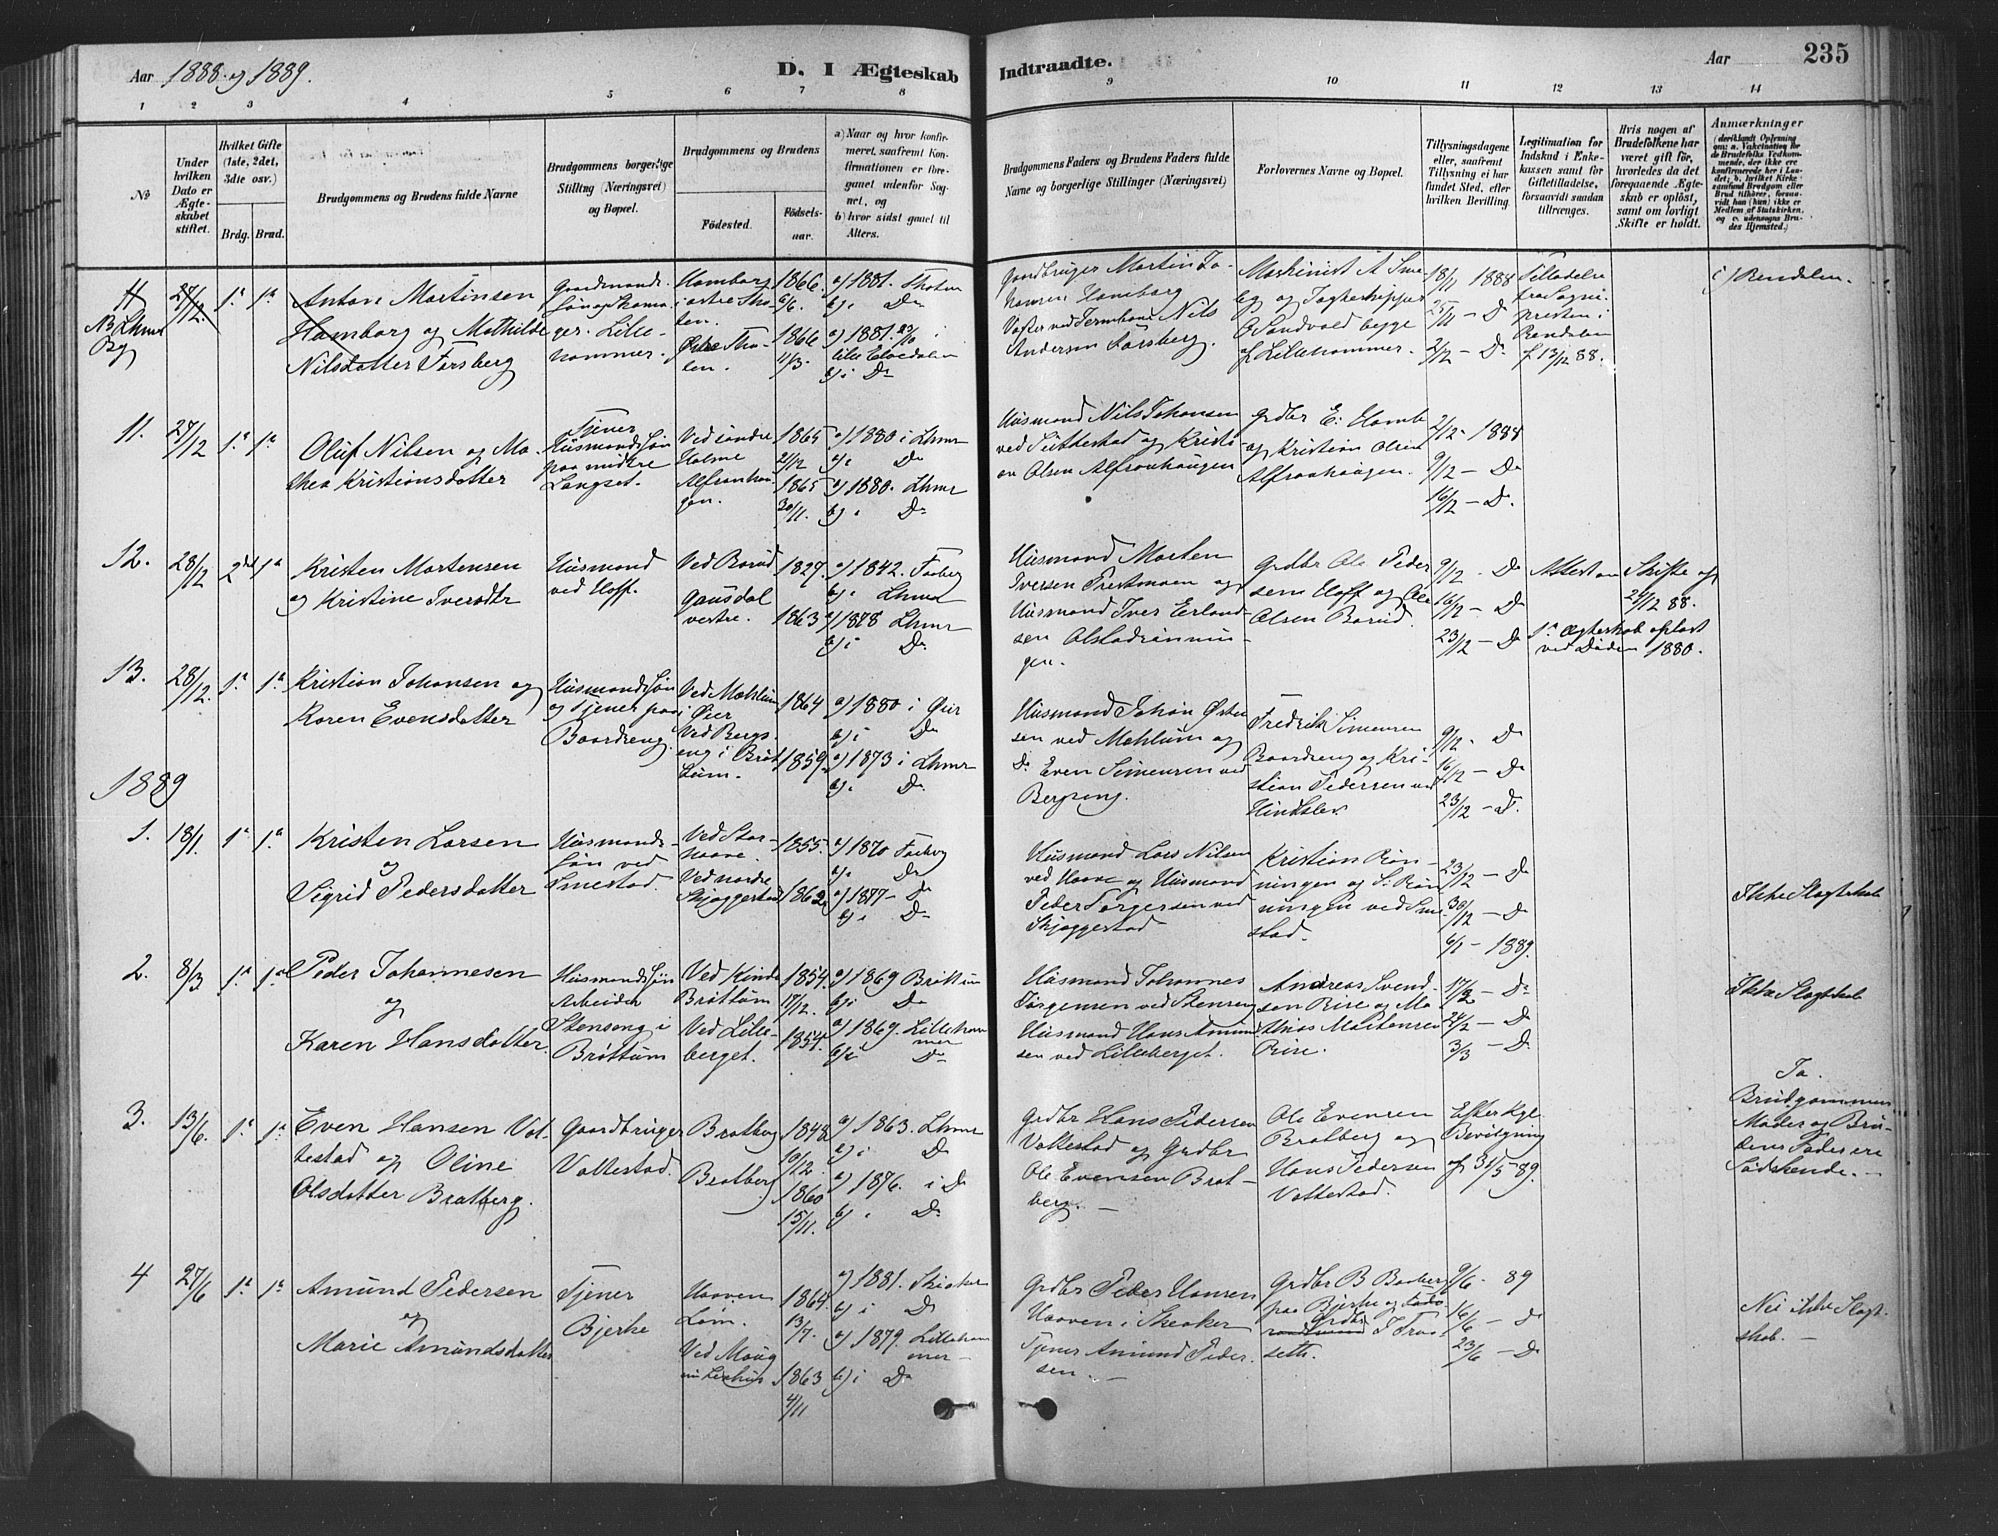 Aar 1888 og 1889.
D. I Ægteskab
Indtraadte.
Aar
235
1 2 3 4 5 6 7 8 9 10 11 12 13 14
No
Under hvilken Dato er Ægteskabet stiftet.
Hvilket Gifte (1ste, 2det, 3die osv.)
Brdg. Brud.
Brudgommens og Brudens fulde Navne
Brudgommens borgerlige Stilling (Næringsvei) og Bopæl.
Brudgommens og Brudens
Fødested.
Fødselsaar.
a) Naar og hvor konfirmeret, saafremt Konfirmationen er foregaaet udenfor Sognet, og
b) hvor sidst gaaet til Alters.
Brudgommens Faders og Brudens Faders fulde Navne og borgerlige Stillinger (Næringsvei)
Forlovernes Navne og Bopæl.
Tillysningsdagene eller, saafremt Tillysning ei har fundet Sted, efter hvilken Bevilling.
Legitimation for Indskud i Enkekassen samt for Giftetilladelse, forsaavidt saadan tiltrænges.
Hvis nogen af Brudefolkene har været gift før, hvorledes da det foregaaende Ægteskab er opløst, samt om lovligt Skifte er holdt.
Anmærkninger
27/12. 1ste 1ste
Anton Martinsen
Hamborg og Mathilde
Nilsdatter Forsberg
Lillehammer.
1866 6/6.
1866 11/3.
a) 1881. Thoten
b) i Do
a) 1881.
b) i Do
Gaardbruger Martin Johansen Hamborg
Nils Andersen Forsberg.
Maskinist A Smeby og
O Sandvold begge af Lillehammer.
18/11 1888
25/11 — D
2/12 — D.
Tilladelse fra Sognepresten i Rendalen
f 13/12 88.
Rendalen.
11. 27/12 1ste 1ste
Oluf Nilsen og Mathea Kristiansdatter
Tjener
Husmandssøn paa midtre Langset.
Ved søndre Holme
Alfronhaugen.
1865 21/12
1865 30/11.
a) 1880 i Lhmr
b) i Do
a) 1880. Lhmr
b) i Do
Husmand Nils Johansen ved Sættestad og Kristian Olsen Alfronhaugen
Grdbr E. Homb og Kristian Olsen Alfronhaugen.
2/12 - 1888
9/12 — Do
16/12 — D.
12. 28/12 2det 1ste
Kristen Mortensen
og Kristine Iversdtr
Husmand ved Hoff.
Ved Borud
Gausdal vestre.
1827.
1863
a) 1842. Faaberg
b) i Lhmr
a) 1878 Lhmr
b) i Do
Husmand Morten Iversen Prestmoen og
Husmand Iver Erlandsen
Grdbr Ole Pedersen Hoff og Ole Olsen Borud.
9/12 - Do
16/12 — D
23/12 — D
Attest om Skifte af 24/12 88.
1ste Ægteskab opløst ved Døden 1880.
13. 28/12. 1ste 1ste
Kristian Johansen og
Karen Evensdatter
Husmandssøn og Tjener paa Baardseng.
Ved Mæhlum i Øier
Ved Bergseng i Brøttum.
1864
1859
a) 1880 i Øier
b) i Do
a) 1873 i Lhmr
b) i Do
Husmand Johan Østensen ved Mæhlum og
Do Even Simensen ved Bergseng.
Fredrik Simensen Baardseng og Kristian Pedersen ved Hindklev
9/12 - D
16/12 — D
23/12 — D.
1889
1. 18/1. 1ste 1ste
Kristen Larsen
og
Sigrid Pedersdatter
Husmandssøn ved Smestad.
Ved Storhaave.
Ved nordre Skjæggestad
1855.
1862
a) 1870 Faaberg
b) i Do
a) 1877 - D
b) i D
Husmand Lars Nilsen ved Haave og Husmand
Peder Torgersen ved Skjæggestad
Kristian Rønningen og S. Rønningen ved Smestad.
23/12 — D
30/12 — D
6/1 - 1889.
Ikke Slægtskab
2. 8/3 1ste 1ste
Peder Johannesen
og
Karen Hansdatter.
Husmandssøn
Arbeider
Stenseng i Brøttum
Ved Kinde Brøttum
Ved Lilleberget.
1854. 17/12.
1854.
a) 1869 Brøttum
b) i Do
a) 1869. Lillehammer
b) i Do
Husmand Johannes Jørgensen ved Stenseng
Husmand Hans Amundsen ved Lilleberget.
Andreas Svendsen Rise og Mathias Martensen Rise.
17/2 — Do
24/2 — D
3/3 — D
Ikke Slægtskab
3. 13/6. 1ste 1ste
Even Hansen Valtestad og Oline
Olsdatter Bratberg.
Gaardbruger
Valtestad.
Bratberg
Bratberg
1848 10/12.
1860 15/11.
a) 1863. Lhmr
b) i D
a) 1876. i D
b) i D
Grdbr Hans Pedersen Valtestad og Grdbr
Ole Evensen Bratberg. —
Ole Evensen Bratberg og
Hans Pedersen Valtestad.
Efter Kgl Bevilgning af 31/5 - 89.
Ja.
Brudgommens Moder og Brudens Fader ere Sødskende. —
4 27/6 1ste 1ste
Amund Pedersen
og
Marie Amundsdatter
Tjener
Bjerke
Haaven Lom.
1864. 13/7.
1863 4/11
a) 1881. Skiaker
b) i D
a) 1879. Lillehammer —
b) i Do
Grdbr Peder Hansen Haaven i Skeaker
Tjener Amund Pedersen. —
Grdbr B Baaberg paa Bjerke og
Grdbr
9/6 - 89
16/6 — D
23/6 — D
Nei ikke Slægtskab. —